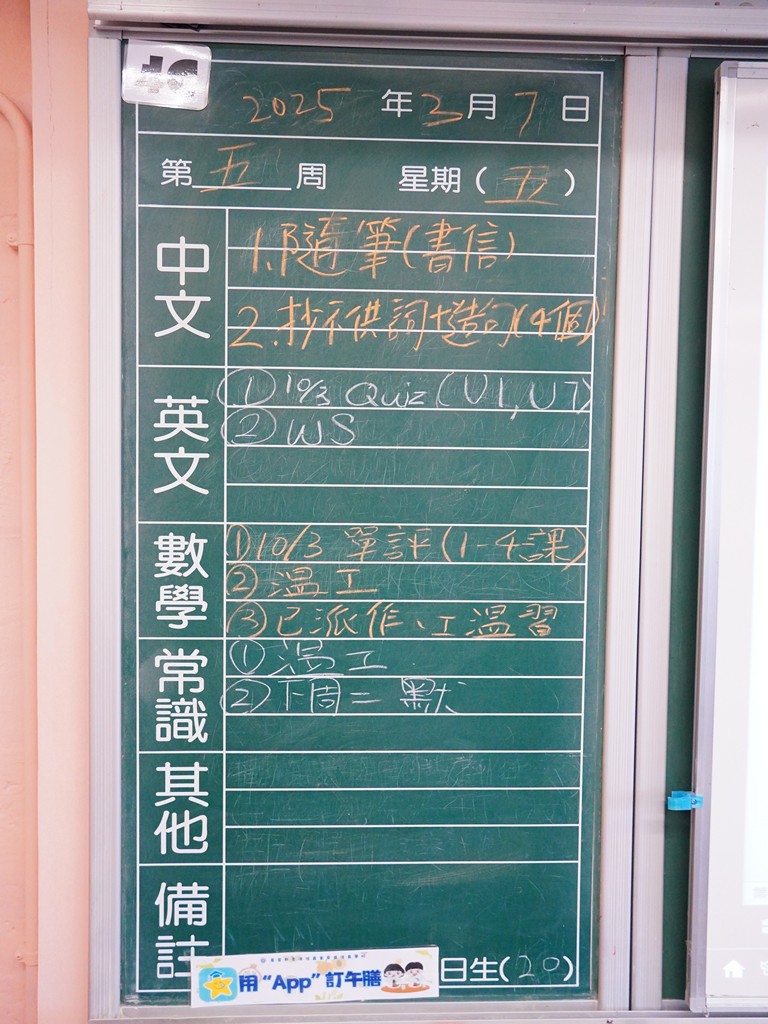 4C
2025 年 3 月 7 日
第 五 周 星期 ( 五 )
中文
1.隨筆(書信)
2.抄不供詞+造句(4個)
英文
① 10/3 Quiz (U1,U7)
② WS
數學
①10/3 單評(1-4課)
②溫工
③已派作、工溫習
常識
①溫工
②下周二 默
其他
備註
用“App”訂午膳
日生(20)